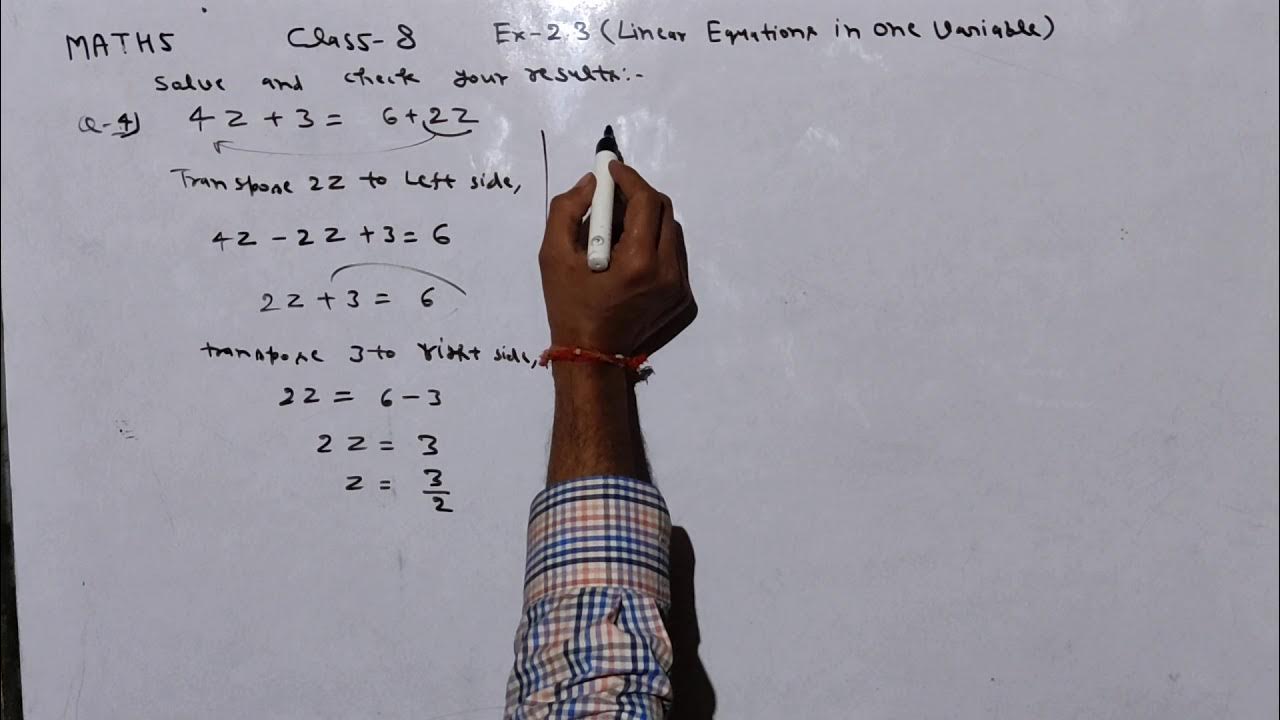 MATHS Class-8 Ex-2.3 (Linear Equations in one Variable)
Solve and check your results:-
Q-4) 4z + 3 = 6 + 2z
Transpose 2z to Left side,
4z - 2z + 3 = 6
2z + 3 = 6
transpose 3 to right side,
2z = 6 - 3
2z = 3
z = 3/2